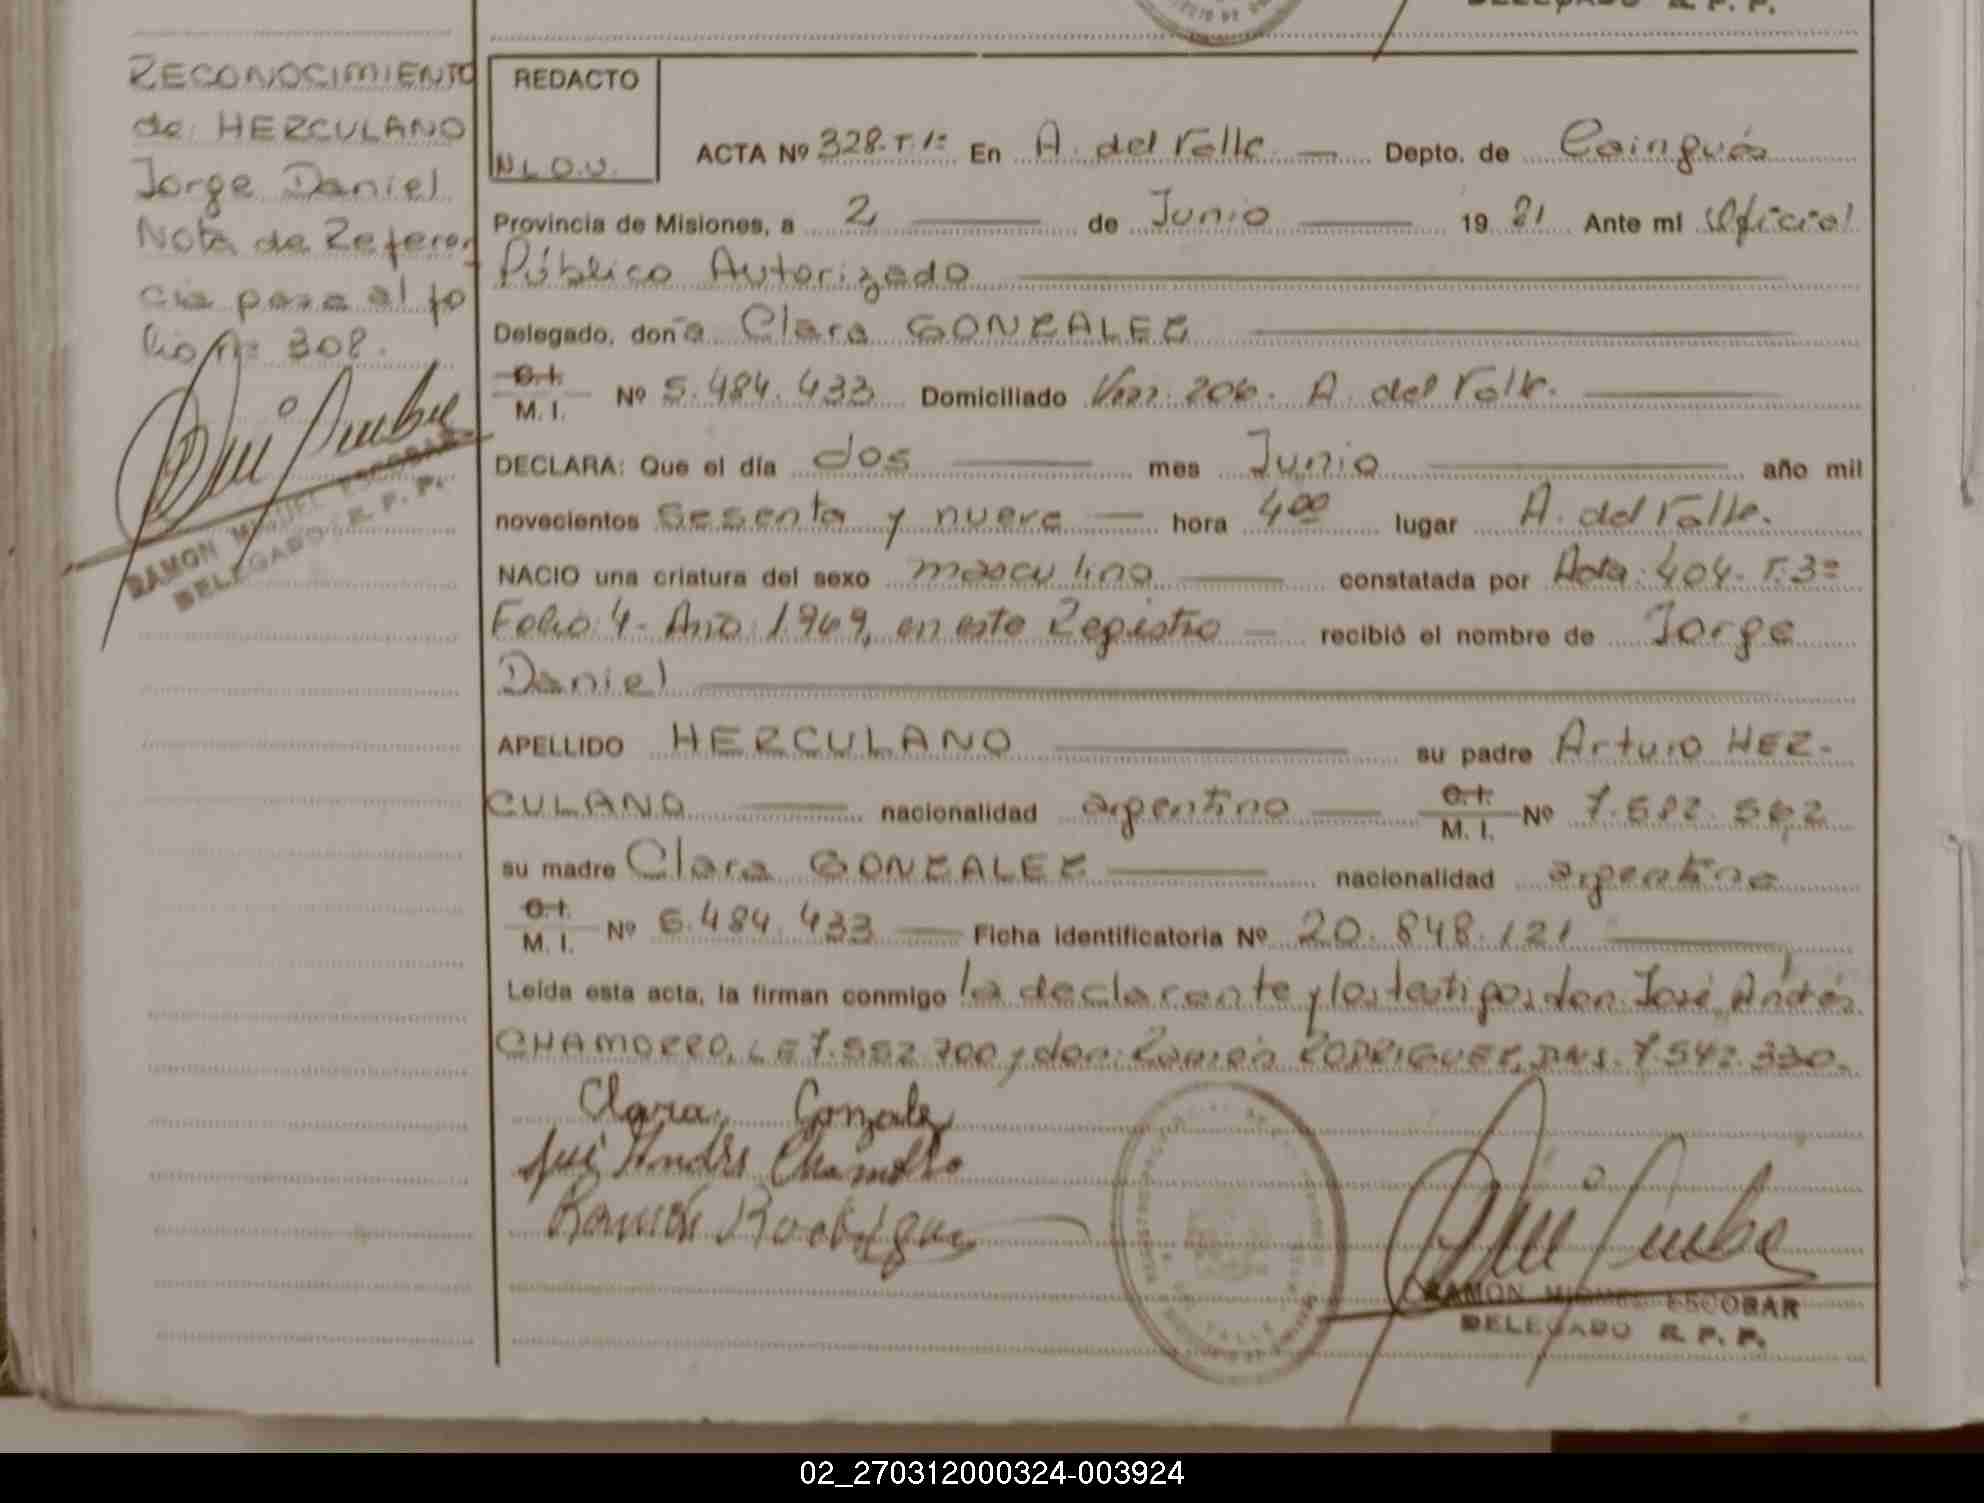 DELEGADO R. P. P.
RECONOCIMIENTO
de HERCULANO
Jorge Daniel
Nota de Referen
cia pasa al fo
lio nº 308.
RAMON MIGUEL ESCOBAR
DELEGADO R. P. P.
REDACTO
N.L.O.V.
ACTA Nº 328.T.1º En A. del Valle — Depto. de Cainguás
Provincia de Misiones, a 2 — de Junio — 19 81 Ante mi Oficial
Público Autorizado
Delegado, doña Clara GONZALEZ
C.I.
M. I. Nº 5.484.433 Domiciliado 206. A. del Valle.
DECLARA: Que el día dos — mes Junio — año mil
novecientos sesenta y nueve — hora 4 00 lugar A. del Valle.
NACIO una criatura del sexo masculino — constatada por Acta: 404- T.3º
Folio: 4- Año 1969, en este Registro — recibió el nombre de Jorge
Daniel
APELLIDO HERCULANO — su padre Arturo HER-
CULANO — nacionalidad argentino — C.I. M. I. Nº 7.582.562
su madre Clara GONZALEZ — nacionalidad argentina
C.I.
M. I. Nº 5.484.433 — Ficha identificatoria Nº 20.848.121
Leída esta acta, la firman conmigo la declarante y los testigos don: José Andrés
CHAMORRO, LE 7.552.700 y don: Ramón RODRIGUEZ, DNI. 7.542.330.
Clara Gonzalez
José Andrés Chamorro
Ramón Rodrigue
RAMON MIGUEL ESCOBAR
DELEGADO R. P. P.
02_270312000324-003924